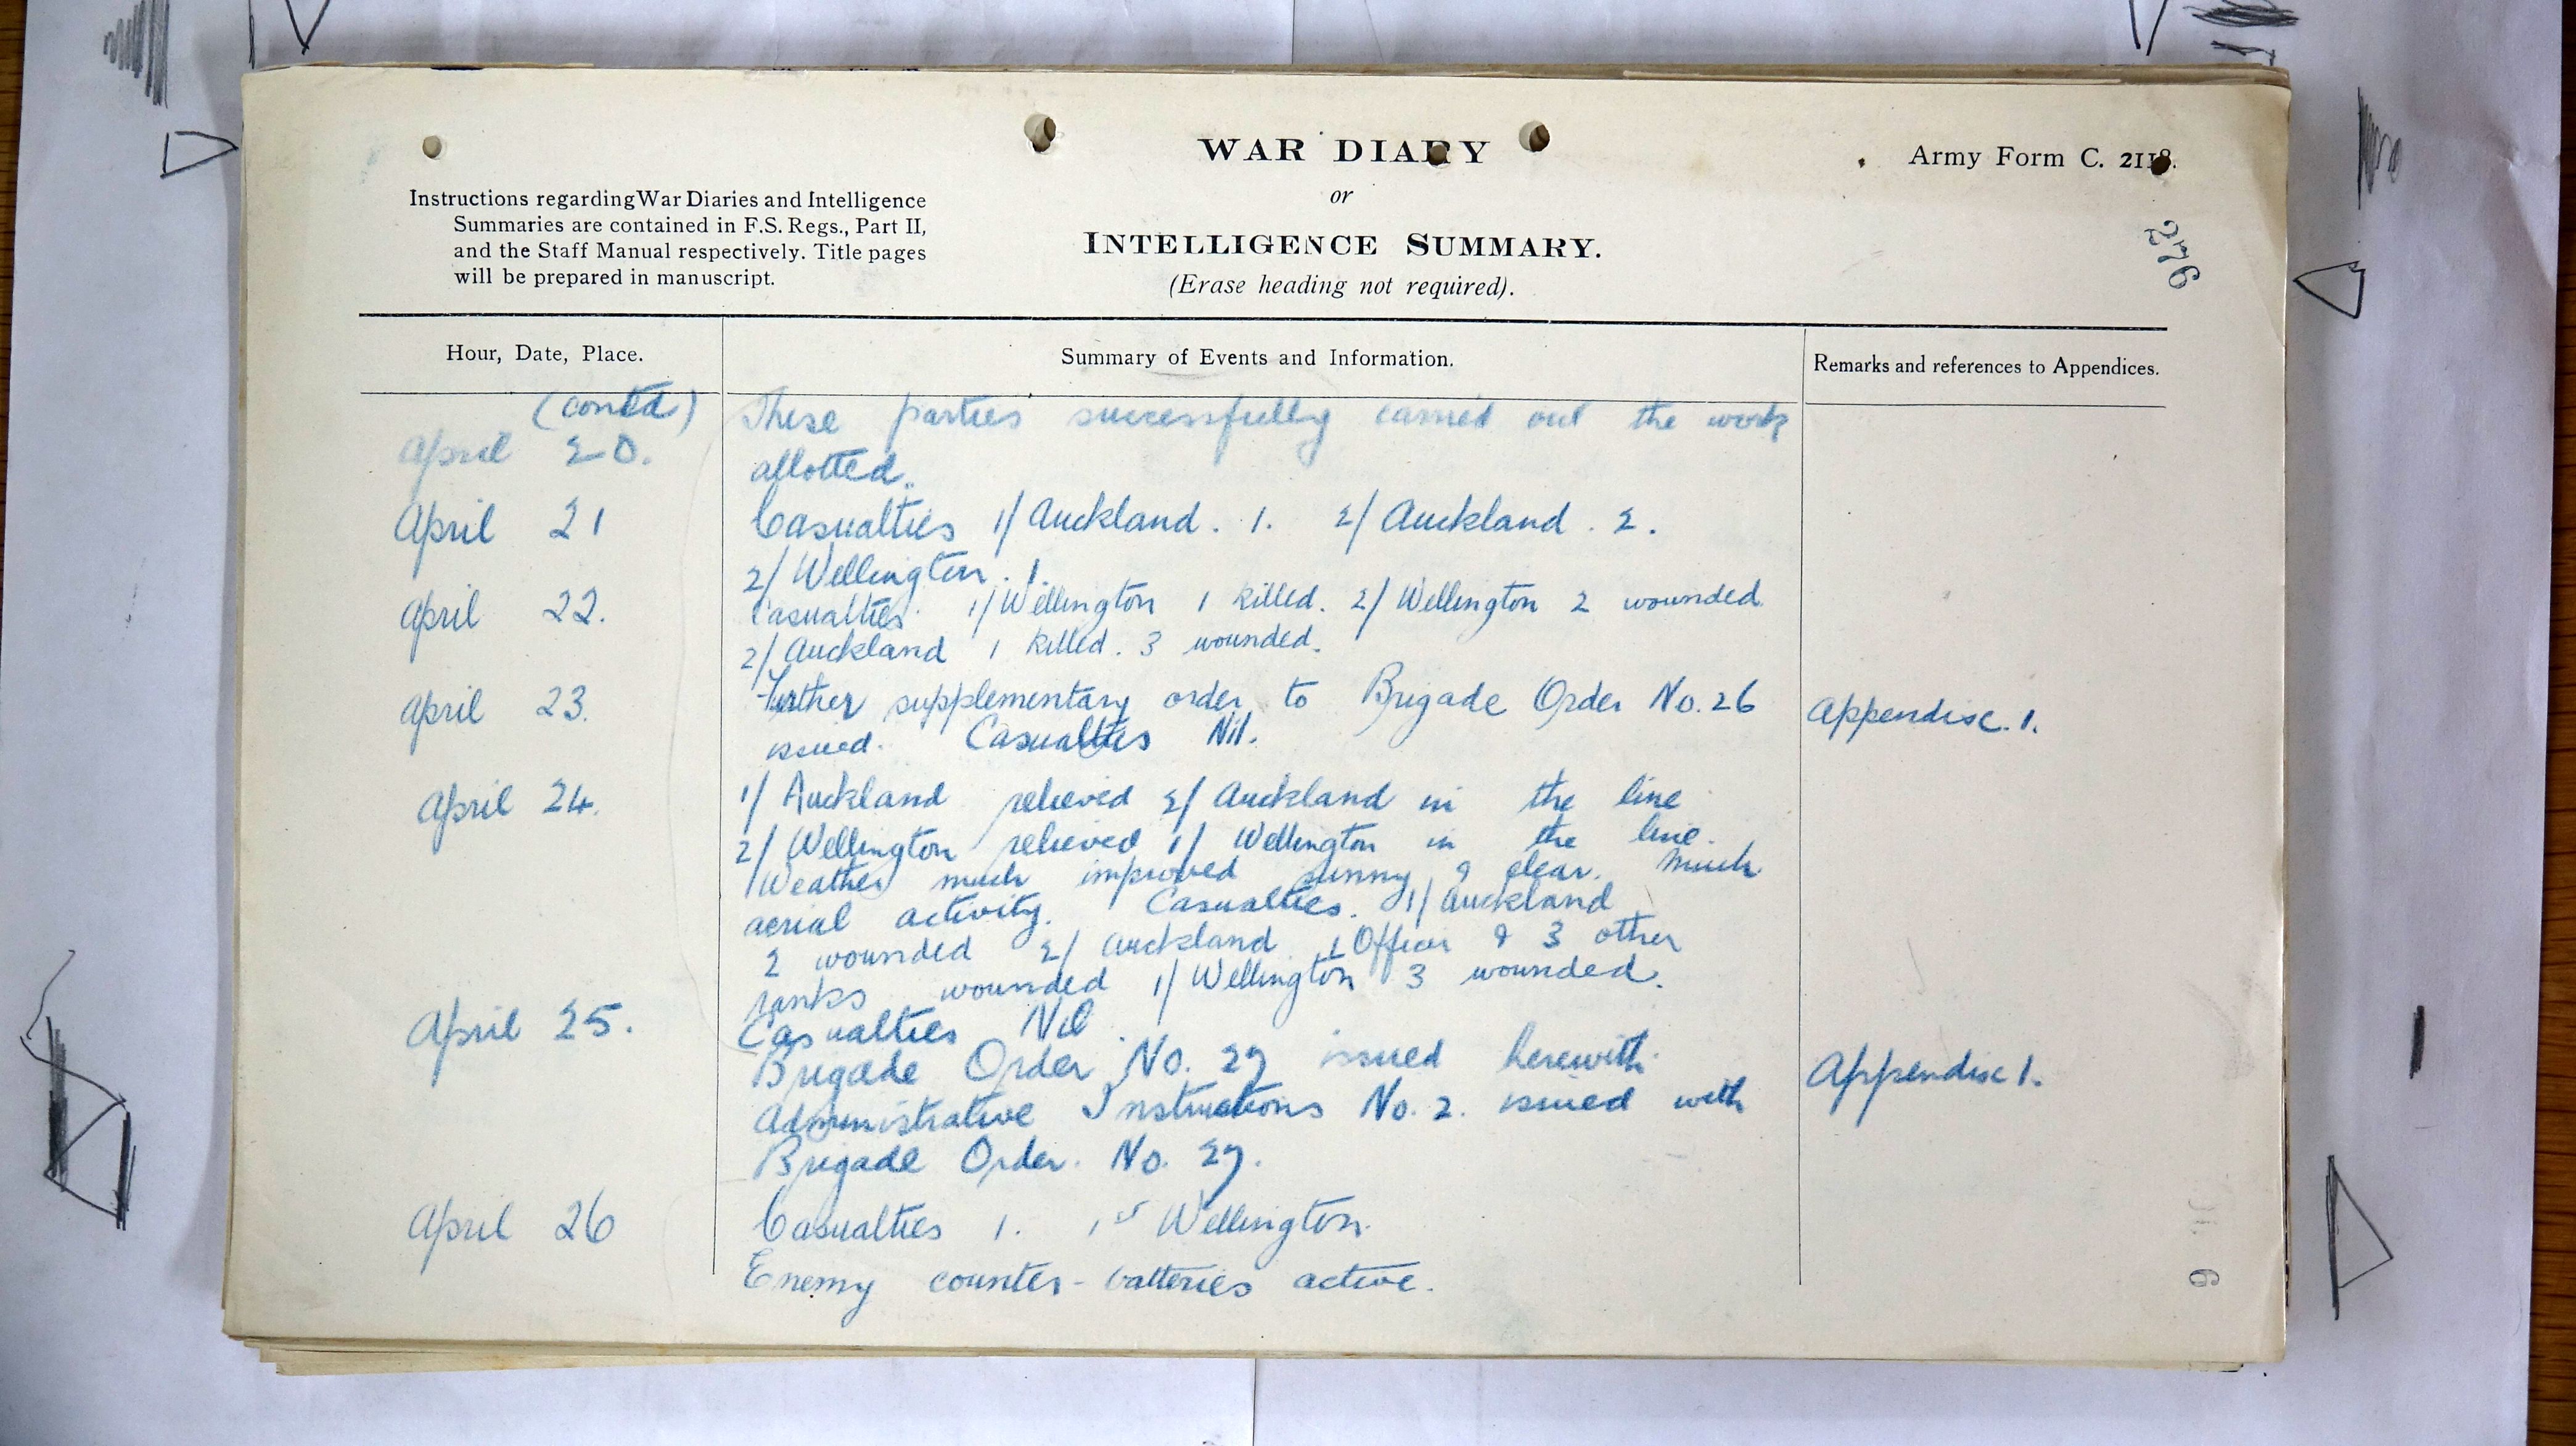 WAR DIARY
Army Form C. 2118.
or
INTELLIGENCE SUMMARY.
(Erase heading not required).
276
Instructions regarding War Diaries and Intelligence
Summaries are contained in F.S. Regs., Part II,
and the Staff Manual respectively. Title pages
will be prepared in manuscript.
Hour, Date, Place.
Summary of Events and Information.
Remarks and references to Appendices.
(contd)
April 20.
These parties successfully carried out the work
allotted.
April 21
Casualties 1/ Auckland. 1. 2/ Auckland. 2.
2/ Wellington. 1.
April 22.
Casualties. 1/ Wellington 1 killed. 2/ Wellington 2 wounded.
2/ Auckland 1 killed. 3 wounded.
April 23.
Further supplementary order to Brigade Order No. 26
issued. Casualties Nil.
Appendix. 1.
April 24.
1/ Auckland relieved 2/ Auckland in the line
2/ Wellington relieved 1/ Wellington in the line.
Weather much improved sunny & clear. Much
aerial activity. Casualties. 1/ Auckland
2 wounded 2/ Auckland 1 Officer & 3 other
ranks wounded 1/ Wellington 3 wounded.
April 25.
Casualties Nil.
Brigade Order No. 27 issued herewith.
Appendix 1.
Administrative Instructions No. 2. issued with
Brigade Order. No. 27.
April 26
Casualties 1. 1st Wellington.
Enemy counter-batteries active.